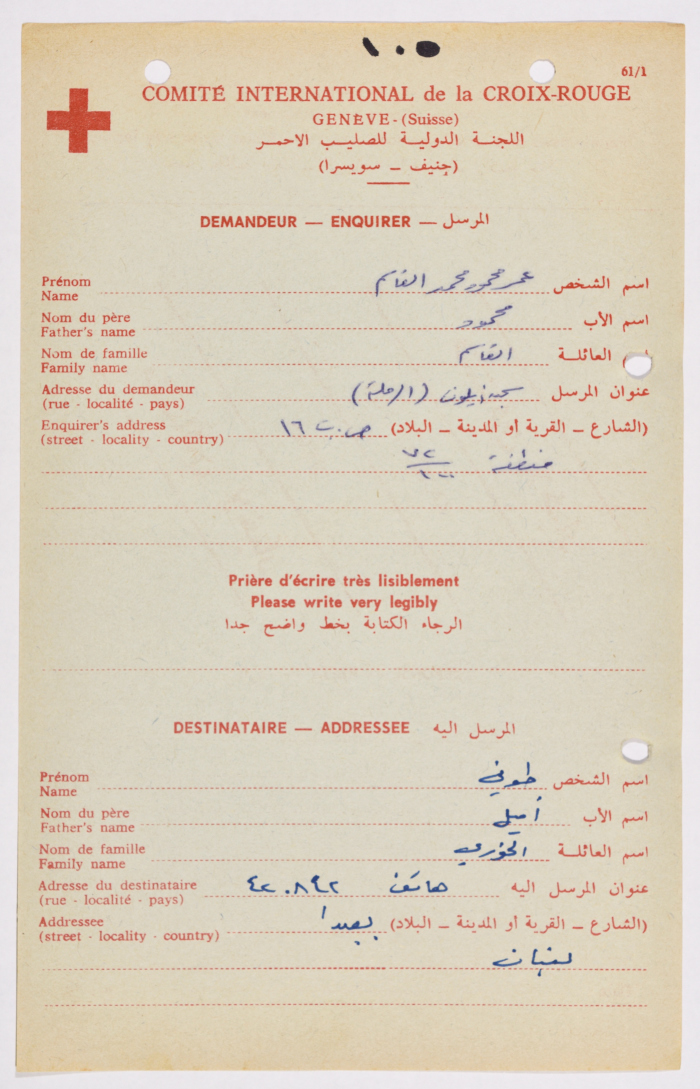 ١٠٥
61/1
COMITÉ INTERNATIONAL de la CROIX-ROUGE
GENÈVE - (Suisse)
اللجنة الدولية للصليب الاحمر
(جنيف - سويسرا)
DEMANDEUR — ENQUIRER — المرسل
Prénom
Name
اسم الشخص عمر محمود محمد القاسم
Nom du père
Father's name
اسم الأب محمود
Nom de famille
Family name
العائلة القاسم
Adresse du demandeur
(rue - localité - pays)
عنوان المرسل سجن أيلون (الرملة)
Enquirer's address
(street - locality - country)
(الشارع - القرية او المدينة - البلاد) ص.ب ١٦
منطقة
Prière d'écrire très lisiblement
Please write very legibly
الرجاء الكتابة بخط واضح جدا
DESTINATAIRE — ADDRESSEE المرسل اليه
Prénom
Name
اسم الشخص طوني
Nom du père
Father's name
اسم الأب أميل
Nom de famille
Family name
اسم العائلة الخوري
Adresse du destinataire
(rue - localité - pays)
عنوان المرسل اليه هاتف ٤٢٠٨٤٢
Addressee
(street - locality - country)
(الشارع - القرية او المدينة - البلاد) بعبدا
لبنان